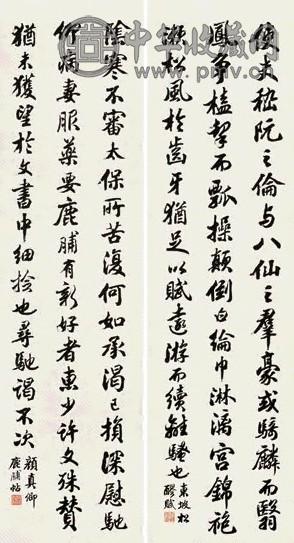 中华收藏网
www.pmv.cn
使夫嵇阮之倫与八仙之羣豪或騎麟而翳
鳳爭榼挈而瓢操顛倒白綸巾淋漓宮錦袍
漱松風於齒牙猶足以賦遠游而續離騷也
東坡松
醪賦
陰寒不審太保所苦復何如承渴已損深慰馳
仰病妻服藥要鹿脯有新好者惠少許文殊贊
猶未獲望於文書中細撿也尋馳謁不次
顏真卿
鹿脯帖